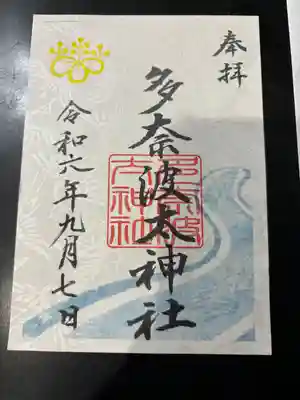 奉拝
多奈波太神社
令和六年九月七日
多奈波
太神社